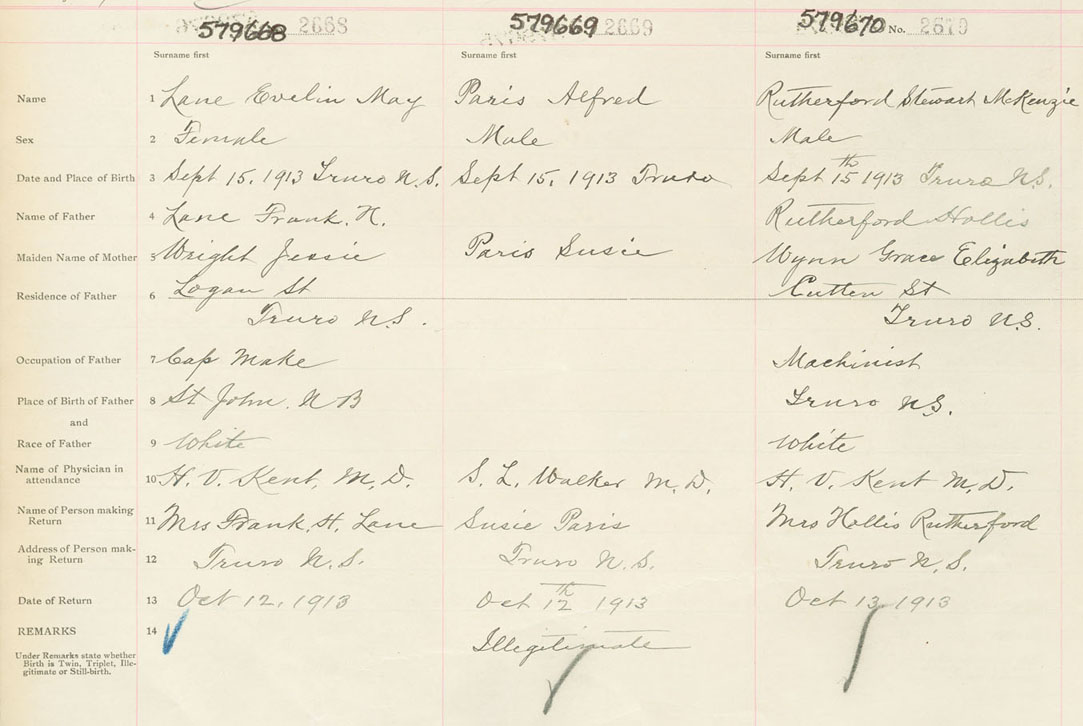 579668 2668 579669 2669 579670 No. 2670
Surname first Surname first Surname first
Name 1 Lane Evelin May Paris Alfred Rutherford Stewart McKenzie
Sex 2 Female Male Male
Date and Place of Birth 3 Sept 15, 1913 Truro N.S. Sept 15, 1913 Truro Sept 15th 1913 Truro N.S.
Name of Father 4 Lane Frank. H. Rutherford Hollis
Maiden Name of Mother 5 Wright Jessie Paris Susie Wynn Grace Elizabeth
Residence of Father 6 Logan St Cutten St
Truro N.S. Truro N.S.
Occupation of Father 7 Cap Make Machinist
Place of Birth of Father 8 St John. N B Truro N.S.
and
Race of Father 9 White White
Name of Physician in
attendance 10 H. V. Kent, M, D. S. L. Walker M. D. H. V. Kent M. D.
Name of Person making
Return 11 Mrs Frank. H. Lane Susie Paris Mrs Hollis Rutherford
Address of Person mak-
ing Return 12 Truro N.S. Truro N.S. Truro N.S.
Date of Return 13 Oct 12, 1913 Oct 12th 1913 Oct 13, 1913
REMARKS 14 Illegitimate
Under Remarks state whether
Birth is Twin, Triplet, Ille-
gitimate or Still-birth.